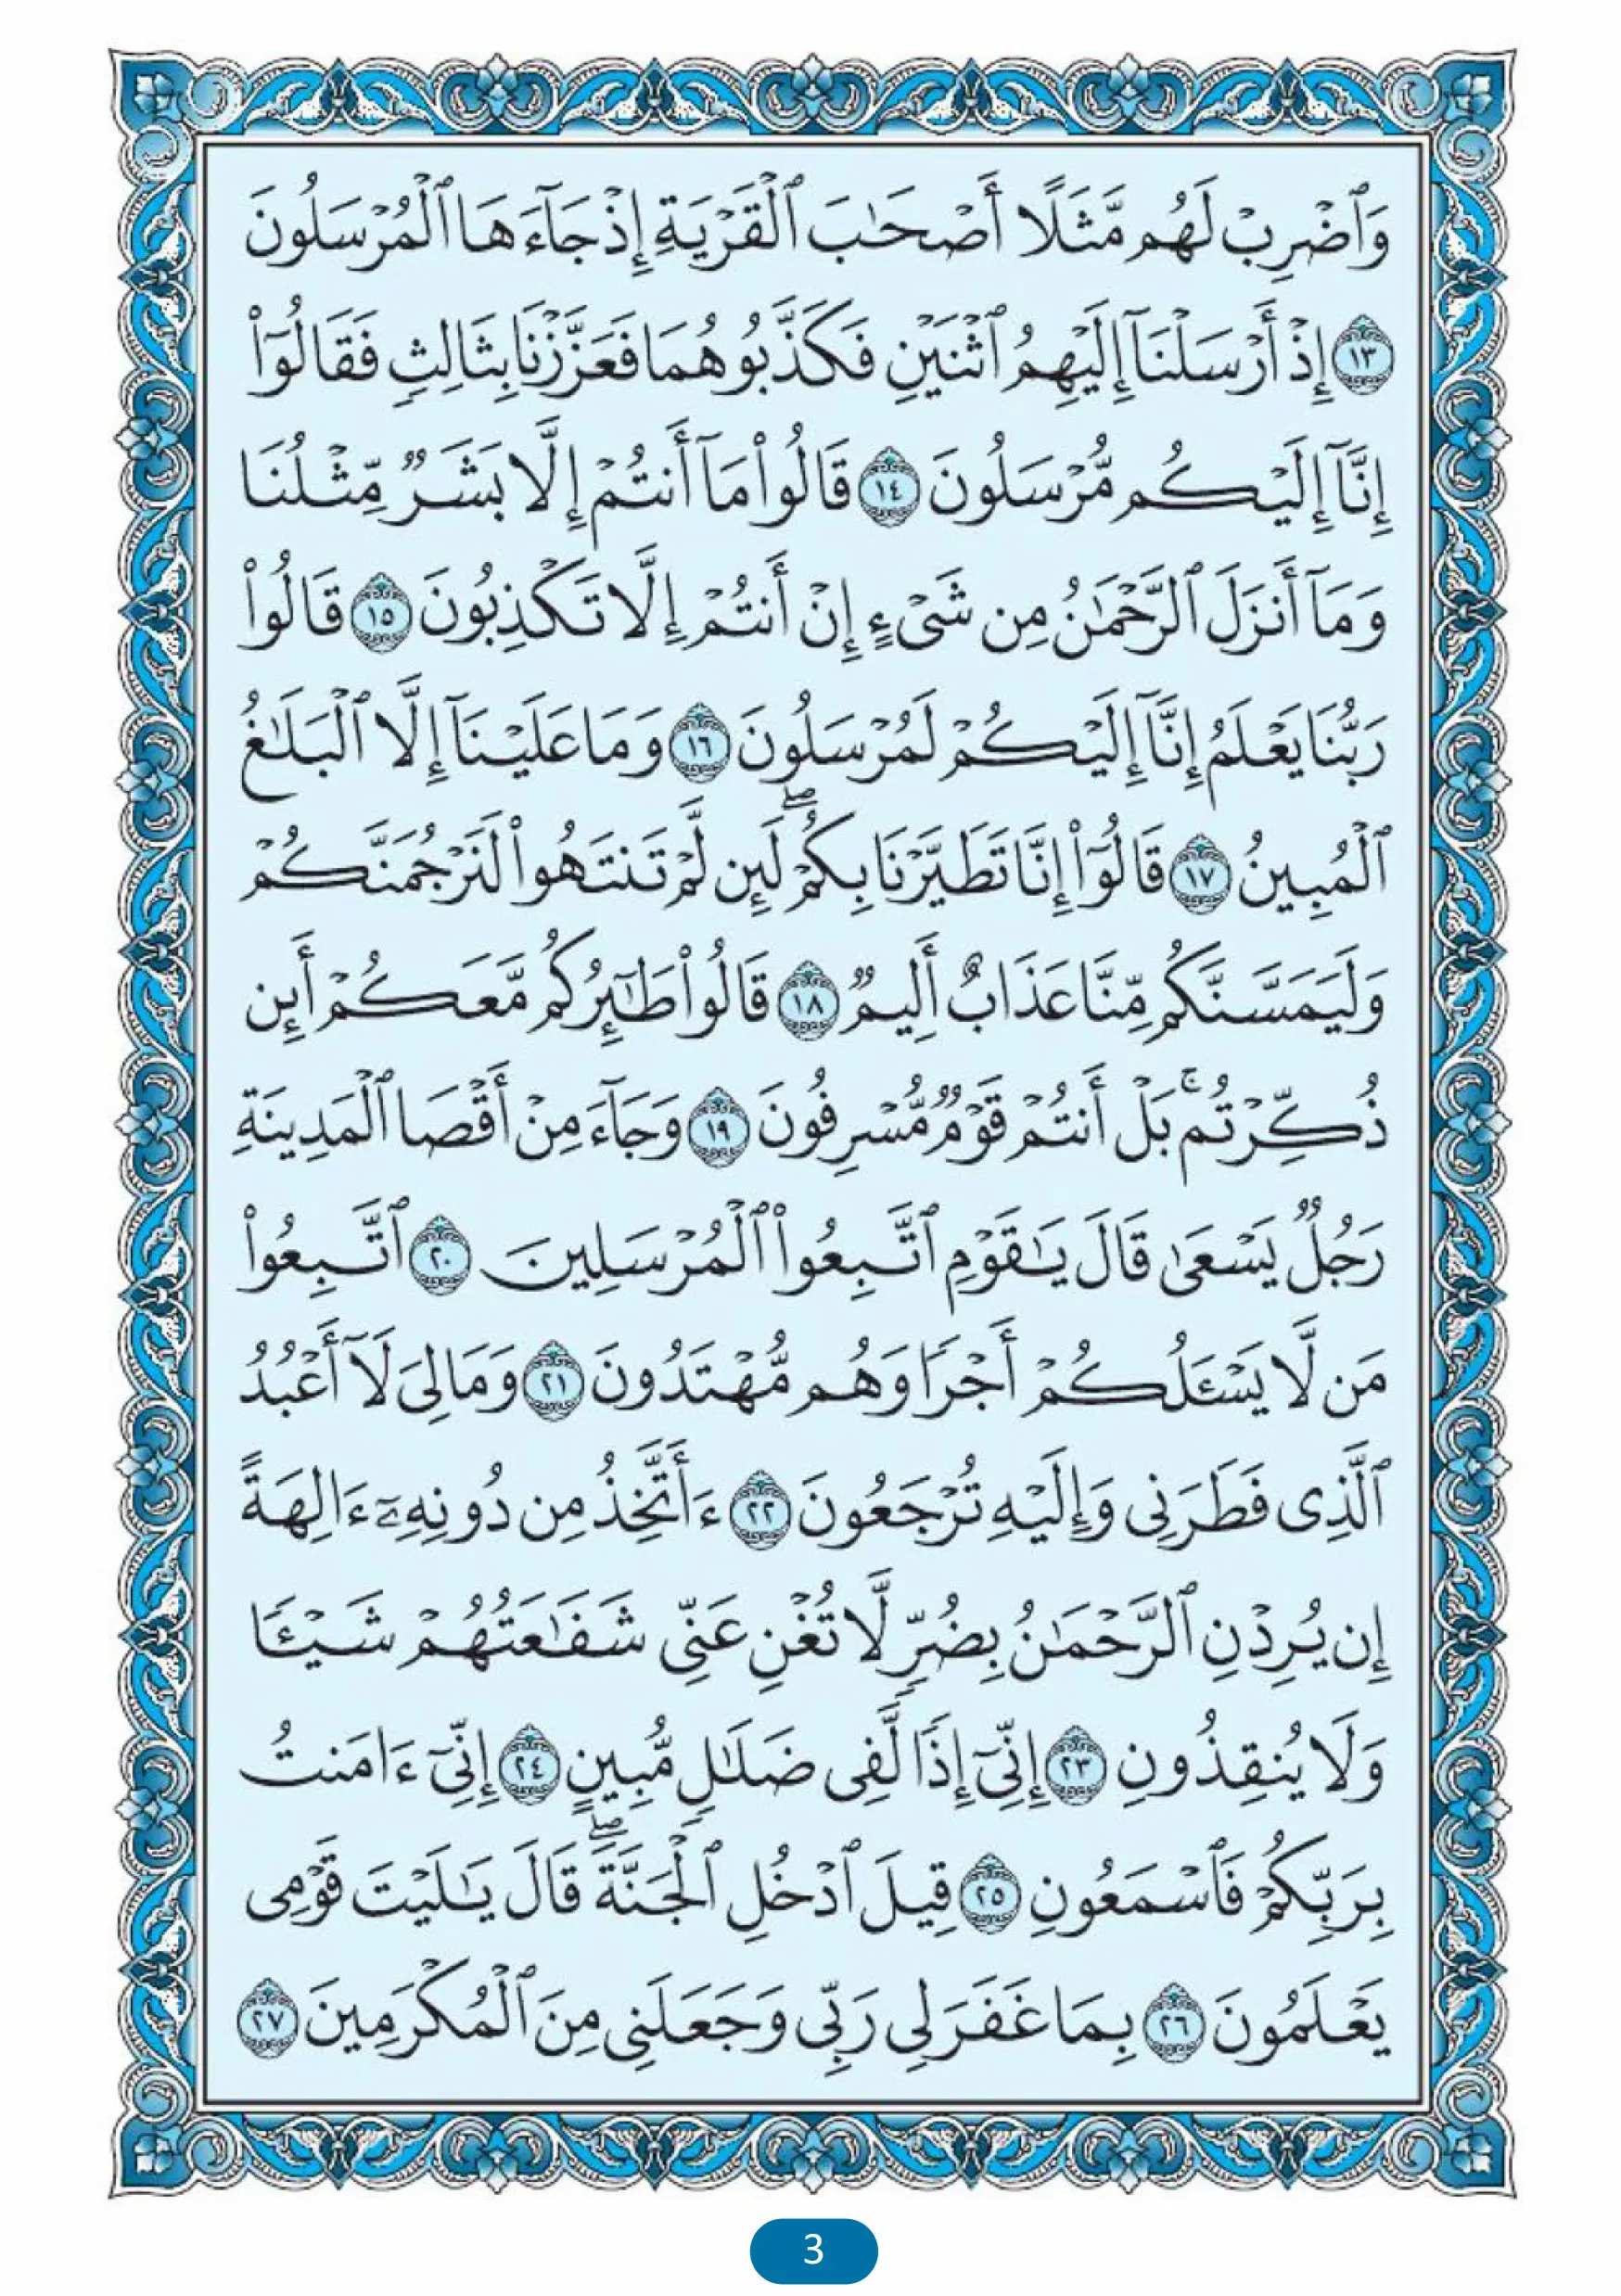 وَٱضۡرِبۡ لَهُم مَّثَلًا أَصۡحَٰبَ ٱلۡقَرۡيَةِ إِذۡ جَآءَهَا ٱلۡمُرۡسَلُونَ
١٣ إِذۡ أَرۡسَلۡنَآ إِلَيۡهِمُ ٱثۡنَيۡنِ فَكَذَّبُوهُمَا فَعَزَّزۡنَا بِثَالِثٖ فَقَالُوٓاْ
إِنَّآ إِلَيۡكُم مُّرۡسَلُونَ ١٤ قَالُواْ مَآ أَنتُمۡ إِلَّا بَشَرٞ مِّثۡلُنَا
وَمَآ أَنزَلَ ٱلرَّحۡمَٰنُ مِن شَيۡءٍ إِنۡ أَنتُمۡ إِلَّا تَكۡذِبُونَ ١٥ قَالُواْ
رَبُّنَا يَعۡلَمُ إِنَّآ إِلَيۡكُمۡ لَمُرۡسَلُونَ ١٦ وَمَا عَلَيۡنَآ إِلَّا ٱلۡبَلَٰغُ
ٱلۡمُبِينُ ١٧ قَالُوٓاْ إِنَّا تَطَيَّرۡنَا بِكُمۡۖ لَئِن لَّمۡ تَنتَهُواْ لَنَرۡجُمَنَّكُمۡ
وَلَيَمَسَّنَّكُم مِّنَّا عَذَابٌ أَلِيمٞ ١٨ قَالُواْ طَٰٓئِرُكُم مَّعَكُمۡ أَئِن
ذُكِّرۡتُمۚ بَلۡ أَنتُمۡ قَوۡمٞ مُّسۡرِفُونَ ١٩ وَجَآءَ مِنۡ أَقۡصَا ٱلۡمَدِينَةِ
رَجُلٞ يَسۡعَىٰ قَالَ يَٰقَوۡمِ ٱتَّبِعُواْ ٱلۡمُرۡسَلِينَ ٢٠ ٱتَّبِعُواْ
مَن لَّا يَسۡـَٔلُكُمۡ أَجۡرٗا وَهُم مُّهۡتَدُونَ ٢١ وَمَالِيَ لَآ أَعۡبُدُ
ٱلَّذِي فَطَرَنِي وَإِلَيۡهِ تُرۡجَعُونَ ٢٢ ءَأَتَّخِذُ مِن دُونِهِۦٓ ءَالِهَةً
إِن يُرِدۡنِ ٱلرَّحۡمَٰنُ بِضُرّٖ لَّا تُغۡنِ عَنِّي شَفَٰعَتُهُمۡ شَيۡـٔٗا
وَلَا يُنقِذُونِ ٢٣ إِنِّيٓ إِذٗا لَّفِي ضَلَٰلٖ مُّبِينٍ ٢٤ إِنِّيٓ ءَامَنتُ
بِرَبِّكُمۡ فَٱسۡمَعُونِ ٢٥ قِيلَ ٱدۡخُلِ ٱلۡجَنَّةَۖ قَالَ يَٰلَيۡتَ قَوۡمِي
يَعۡلَمُونَ ٢٦ بِمَا غَفَرَ لِي رَبِّي وَجَعَلَنِي مِنَ ٱلۡمُكۡرَمِينَ ٢٧
3